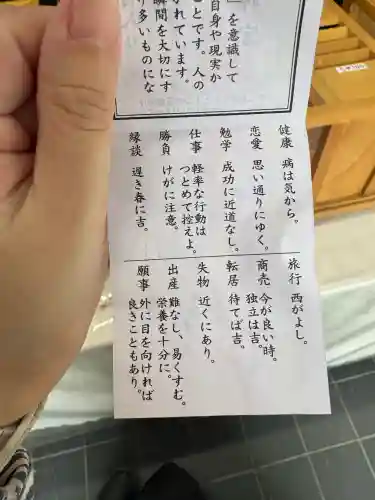 』を意識して
自身や現実か
とです。人の
かれています。
瞬間を大切にす
り多いものにな
健康 病は気から。
恋愛 思い通りにゆく。
勉学 成功に近道なし。
仕事 軽率な行動は
つとめて控えよ。
勝負 けがに注意。
縁談 遅き春に吉。
旅行 西がよし。
商売 今が良い時。
独立は吉。
転居 待てば吉。
失物 近くにあり。
出産 難なし、易くすむ。
栄養を十分に。
願事 外に目を向ければ
良きこともあり。